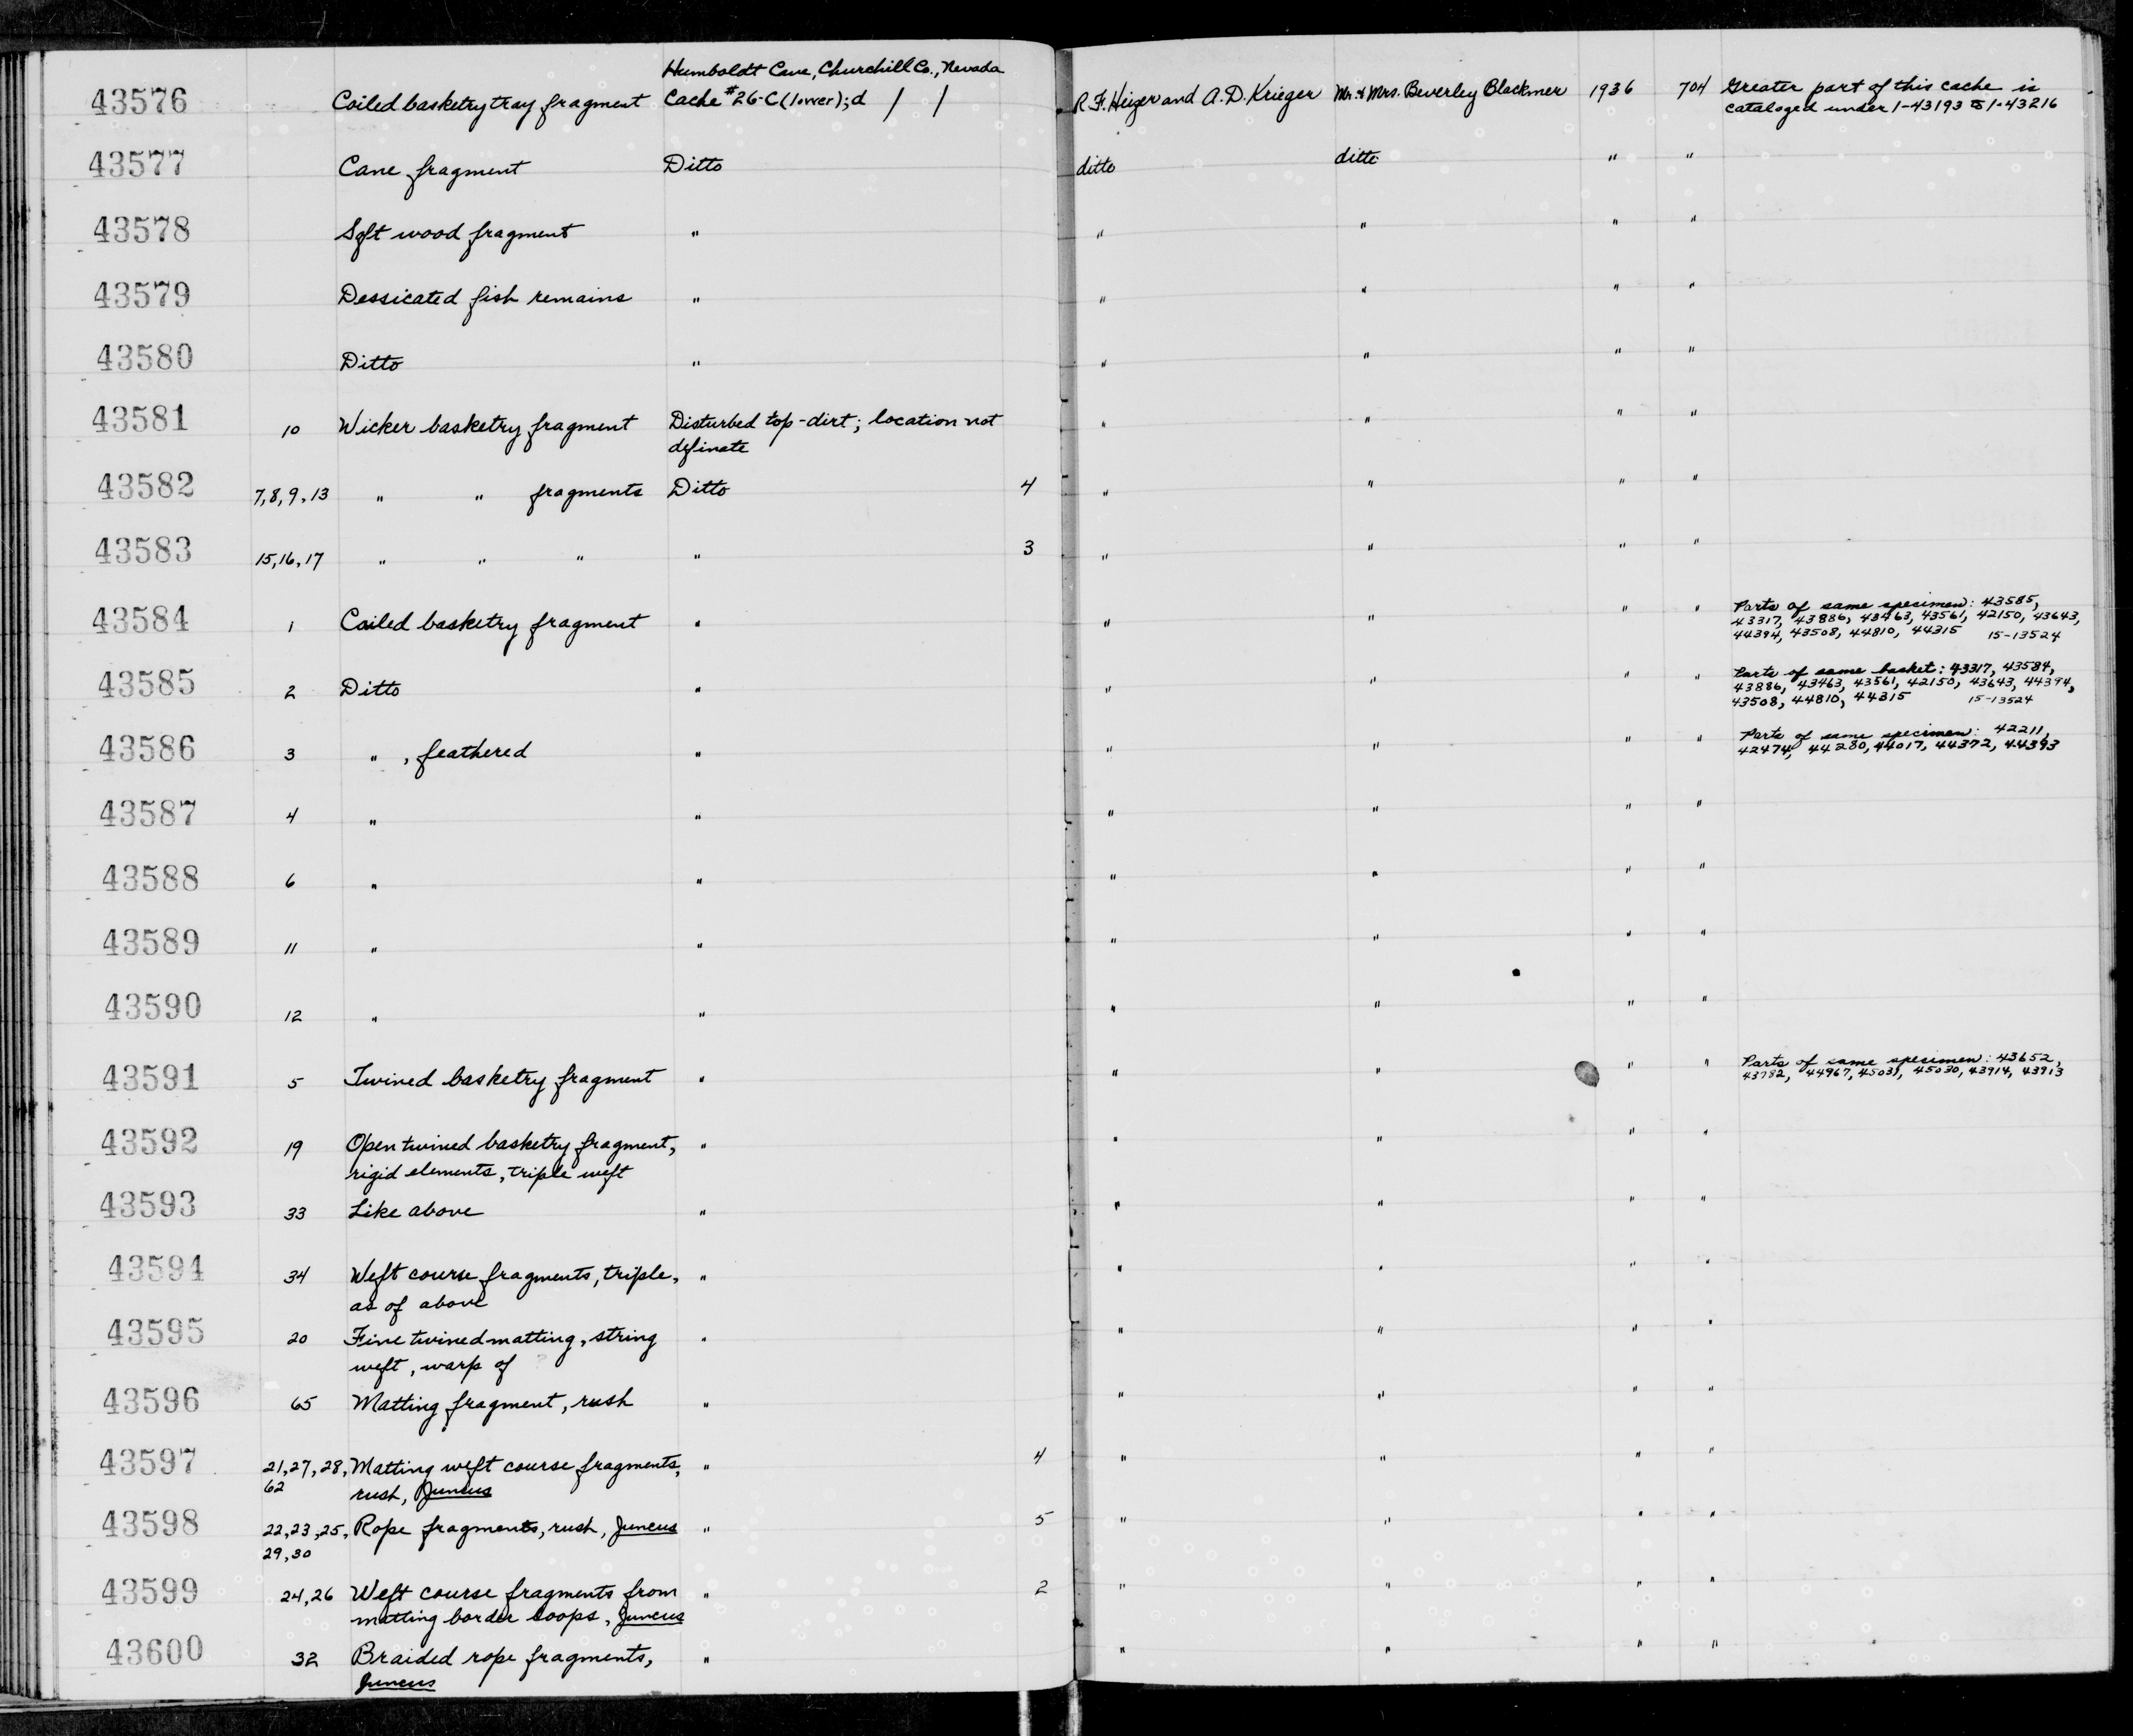 Humboldt Cave, Churchill Co., Nevada
43576 Coiled basketry tray fragment Cache #26-C (lower); d / / R.F. Heizer and A.D. Krieger Mr. & Mrs. Beverley Blackmer 1936 704 Greater part of this cache is
cataloged under 1-43193 to 1-43216
43577 Cane fragment Ditto ditto ditto " "
43578 Soft wood fragment " " " " "
43579 Dessicated fish remains " " " " "
43580 Ditto " " " " "
43581 10 Wicker basketry fragment Disturbed top-dirt; location not " " " "
definate
43582 7,8,9,13 " " fragments Ditto 4 " " " "
43583 15,16,17 " " " " 3 " " " "
43584 1 Coiled basketry fragment " " " " " Parts of same specimen: 43585,
43317, 43886, 43463, 43561, 42150, 43643,
44394, 43508, 44810, 44315 15-13524
43585 2 Ditto " " " " " Parts of same basket: 43317, 43584,
43886, 43463, 43561, 42150, 43643, 44394,
43508, 44810, 44315 15-13524
43586 3 " , feathered " " " " " Parts of same specimen: 42211,
42474, 44280, 44017, 44372, 44393
43587 4 " " " " " "
43588 6 " " " " " "
43589 11 " " " " " "
43590 12 " " " " " "
43591 5 Twined basketry fragment " " " " " Parts of same specimen: 43652,
43782, 44967, 45031, 45030, 43914, 43913
43592 19 Open twined basketry fragment, " " " " "
rigid elements, triple weft
43593 33 Like above " " " " "
43594 34 Weft course fragments, triple, " " " " "
as of above
43595 20 Fine twined matting, string " " " " "
weft, warp of
43596 65 Matting fragment, rush " " " " "
43597 21,27,28, Matting weft course fragments, " 4 " " " "
62 rush, Juncus
43598 22,23,25, Rope fragments, rush, Juncus " 5 " " " "
29,30
43599 24,26 Weft course fragments from " 2 " " " "
matting border loops, Juncus
43600 32 Braided rope fragments, " " " " "
Juncus